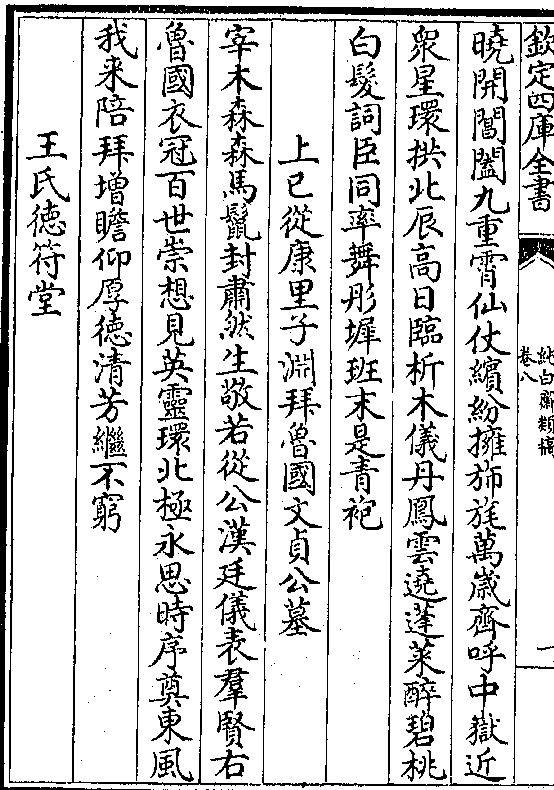 欽定四庫全書
純白齋類稿
卷八
一
曉開閶闔九重霄仙仗繽紛擁斾旄萬歲齊呼中嶽近
衆星環拱北辰高日臨析木儀丹鳳雲遶蓬萊醉碧桃
白髮詞臣同率舞彤墀班末是青袍
上巳從康里子淵拜魯國文貞公墓
宰木森森馬鬛封肅然生敬若從公漢廷儀表羣賢右
魯國衣冠百世崇想見英靈環北極永思時序奠東風
我来陪拜增瞻仰厚徳清芳繼不窮
王氏徳符堂